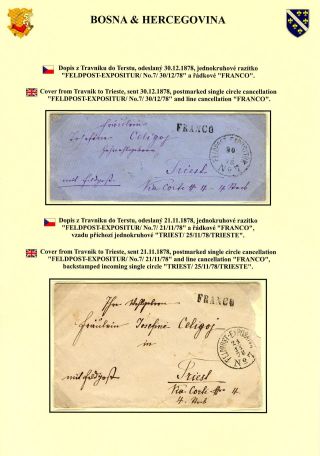 BOSNA & HERCEGOVINA
Dopis z Travniku do Terstu, odeslaný 30.12.1878, jednokruhové razítko
"FELDPOST-EXPOSITUR/ No.7/ 30/12/78" a řádkové "FRANCO".
Cover from Travnik to Trieste, sent 30.12.1878, postmarked single circle cancellation
"FELDPOST-EXPOSITUR/ No.7/ 30/12/78" and line cancellation "FRANCO".
Fräulein
FRANCO
Josefine Celigoj
FELDPOST-EXPOSITUR
30
12
78
No 7
Triest
mit Feldpost
Via Corti No 4 4 Stock
Dopis z Travniku do Terstu, odeslaný 21.11.1878, jednokruhové razítko
"FELDPOST-EXPOSITUR/ No.7/ 21/11/78" a řádkové "FRANCO",
vzadu příchozí jednokruhové "TRIEST/ 25/11/78/TRIESTE".
Cover from Travnik to Trieste, sent 21.11.1878, postmarked single circle cancellation
"FELDPOST-EXPOSITUR/ No.7/ 21/11/78" and line cancellation "FRANCO",
backstamped incoming single circle "TRIEST/ 25/11/78/TRIESTE".
Ihr Wohlgeboren
FRANCO
Fräulein Josefine Celigoj
in
FELDPOST-EXPOSITUR
21
11
78
No 7
mit Feldpost
Triest
Via Corti No 4
4. Stock